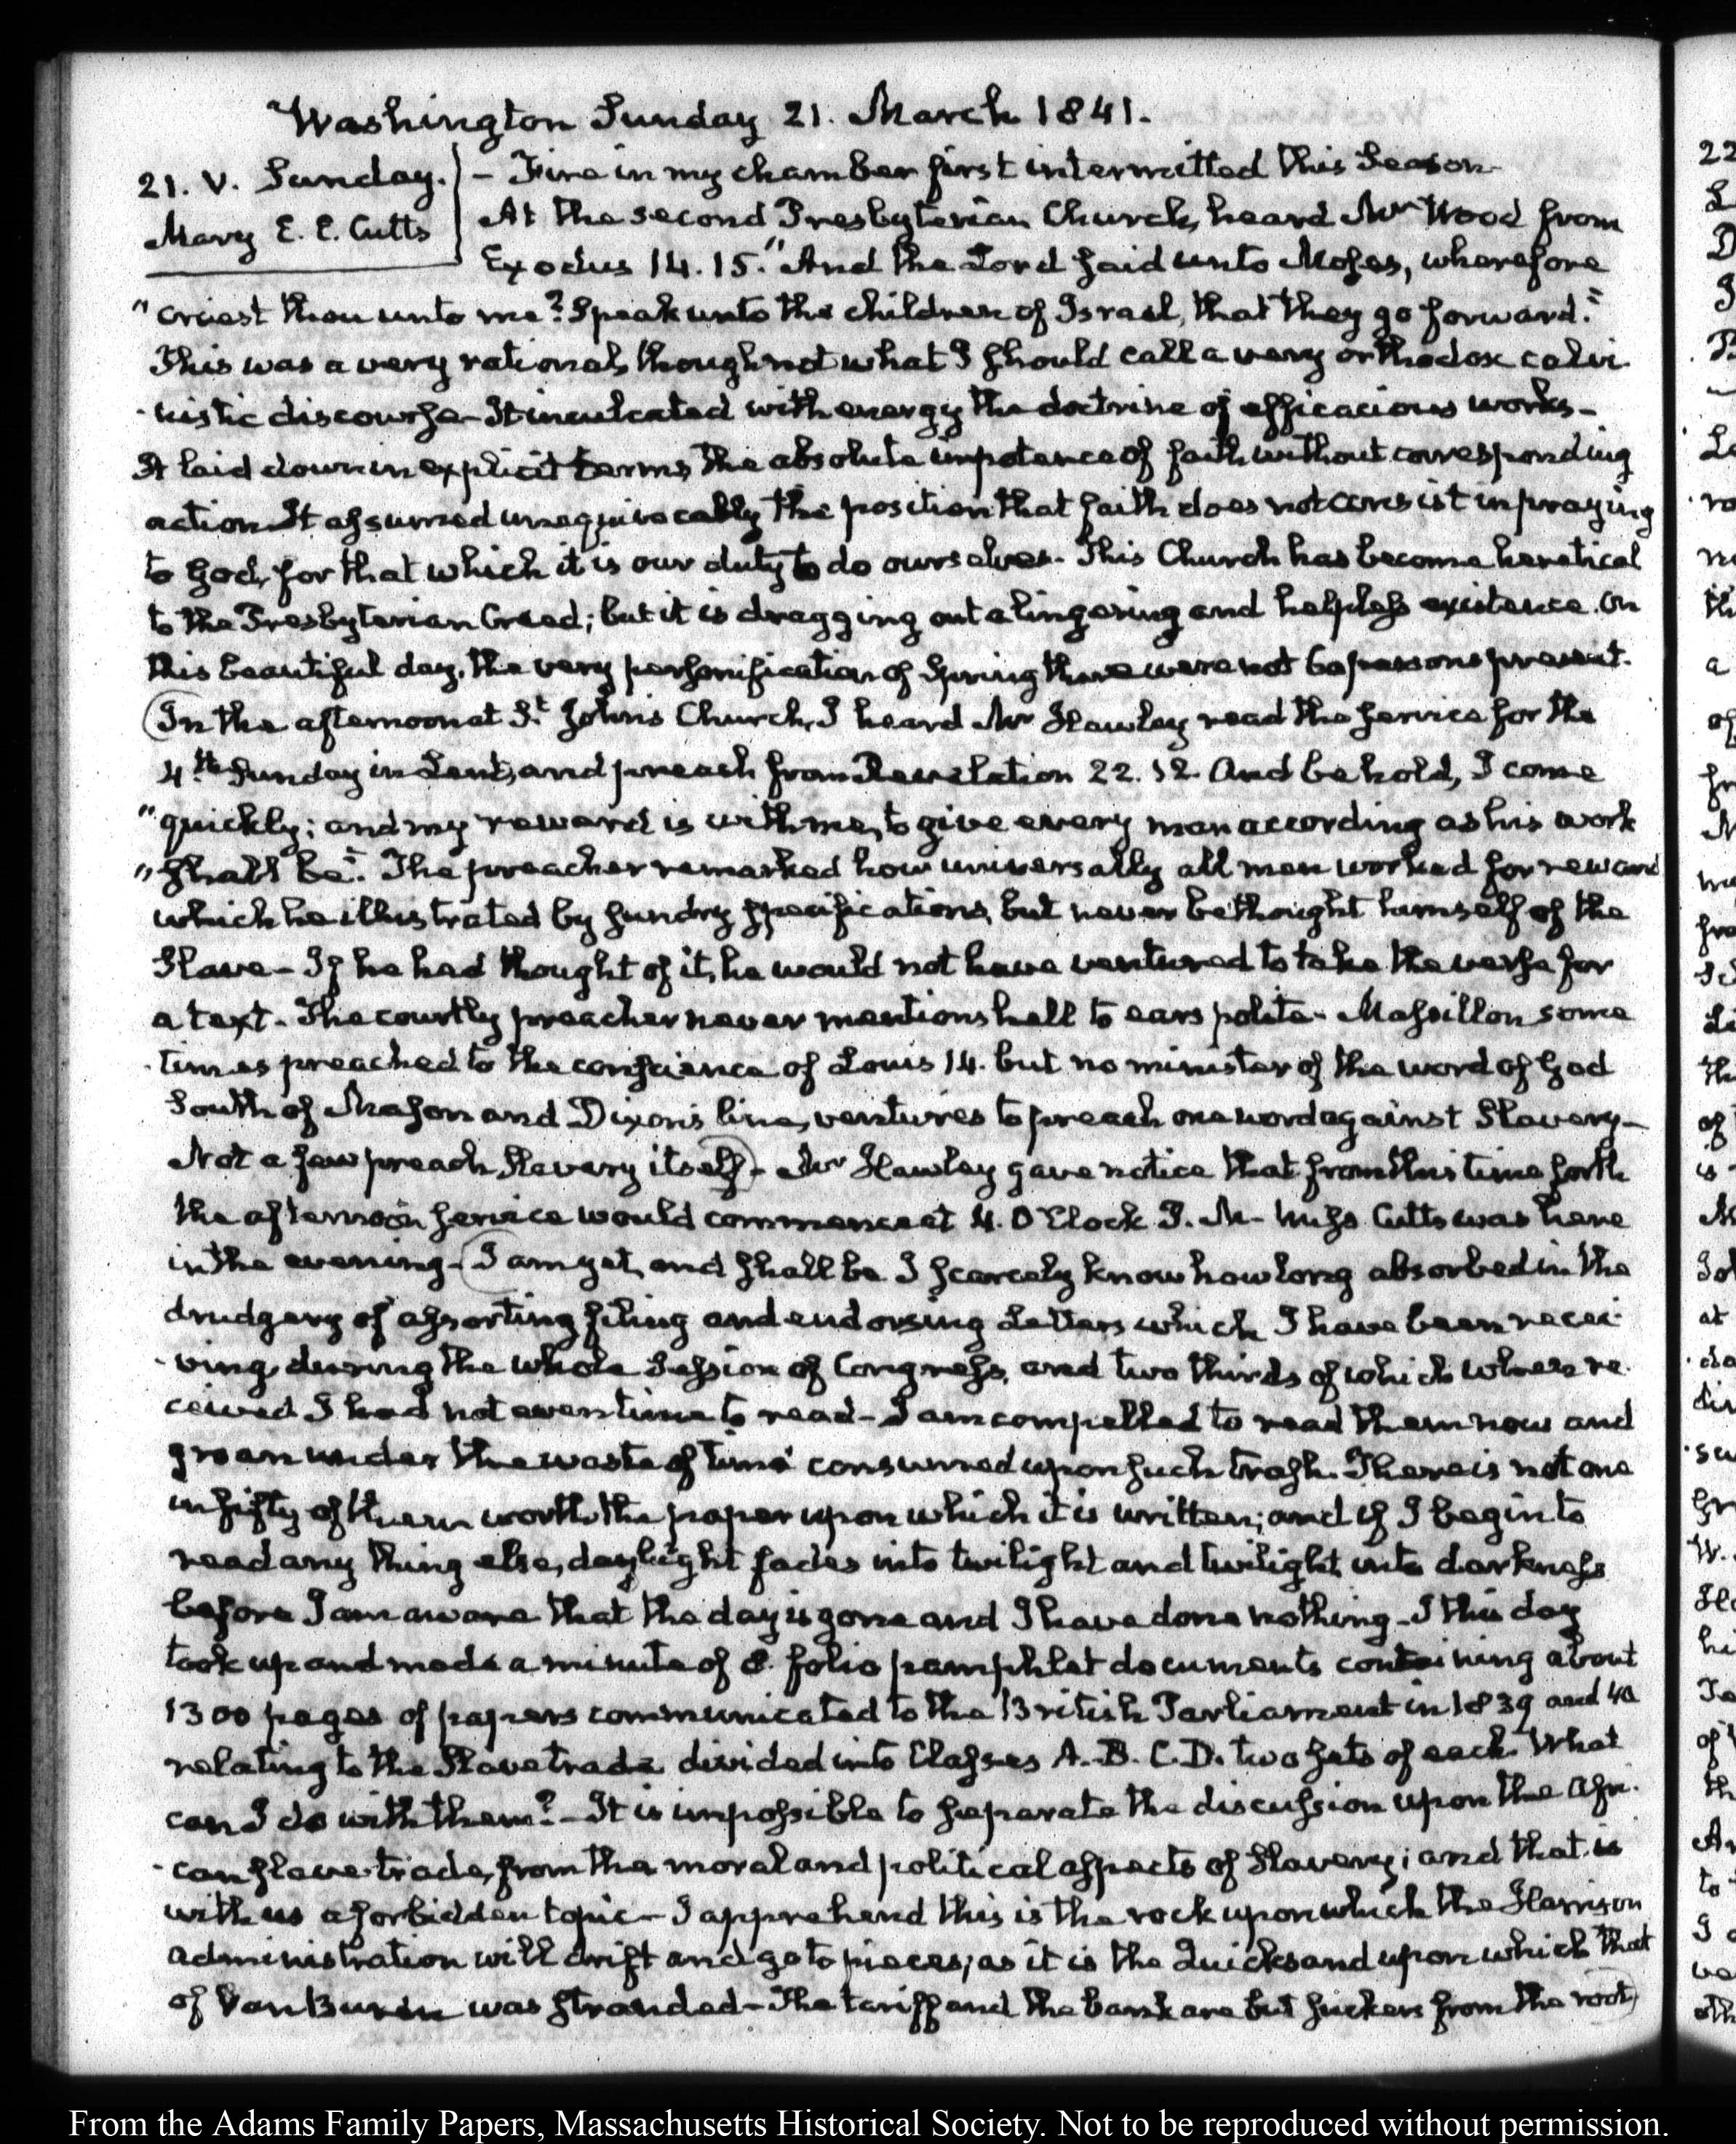 Washington Sunday 21. March 1841.
21. V. Sunday. - Fire in my chamber first intermitted this Season
Mary E. E. Cutts At the second Presbyterian Church, heard Mr Wood from
Exodus 14. 15. "And the Lord said unto Moses, wherefore
"criest thou unto me? Speak unto the children of Israel, that they go forward."
This was a very rational, though not what I should call a very orthodox calvi
-nistic discourse - It inculcated with energy the doctrine of efficacious works -
It laid down in explicit terms, the absolute impotence of faith without corresponding
action. It assumed unequivocally the position that faith does not consist in praying
to God, for that which it is our duty to do ourselves - This Church has become heretical
to the Presbyterian Creed; but it is dragging out a lingering and helpless existence. On
this beautiful day, the very personification of Spring there were not 60 persons present.
(In the afternoon at St. John's Church, I heard Mr Hawley read the service for the
4th. Sunday in Lent, and preach from Revelation 22. 12. And behold, I come
"quickly; and my reward is with me, to give every man according as his work
"shall be." The preacher remarked how universally all men worked for reward
which he illustrated by sundry specifications, but never bethought himself of the
Slave - If he had thought of it, he would not have ventured to take the verse for
a text - The courtly preacher never mentions hell to ears polite - Massillon some
-times preached to the conscience of Louis 14. but no minister of the word of God
South of Mason and Dixon's line, ventures to preach one word against Slavery -
Not a few preach Slavery itself) - Mr Hawley gave notice that from this time forth
the afternoon service would commence at 4. O'Clock P. M - Miss Cutts was here
in the evening - (I am yet, and shall be I scarcely know how long absorbed in the
drudgery of assorting filing and endorsing Letters which I have been recei
-ving during the whole Session of Congress, and two thirds of which when re
ceived I had not even time to read - I am compelled to read them now and
groan under the waste of time consumed upon such trash. There is not one
in fifty of them worth the paper upon which it is written; and if I begin to
read any thing else, daylight fades into twilight and twilight into darkness
before I am aware that the day is gone and I have done nothing - I this day
took up and made a minute of 8. folio pamphlet documents containing about
1300 pages of papers communicated to the British Parliament in 1839 and 40
relating to the Slave trade divided into Classes A. B. C. D. two sets of each. What
can I do with them? - It is impossible to separate the discussion upon the Afri
-can slave-trade, from the moral and political aspects of Slavery; and that is
with us a forbidden topic - I apprehend this is the rock upon which the Harrison
administration will drift and go to pieces; as it is the Quicksand upon which that
of Van Buren was stranded - The tariff and the bank are but suckers from the root)
From the Adams Family Papers, Massachusetts Historical Society. Not to be reproduced without permission.